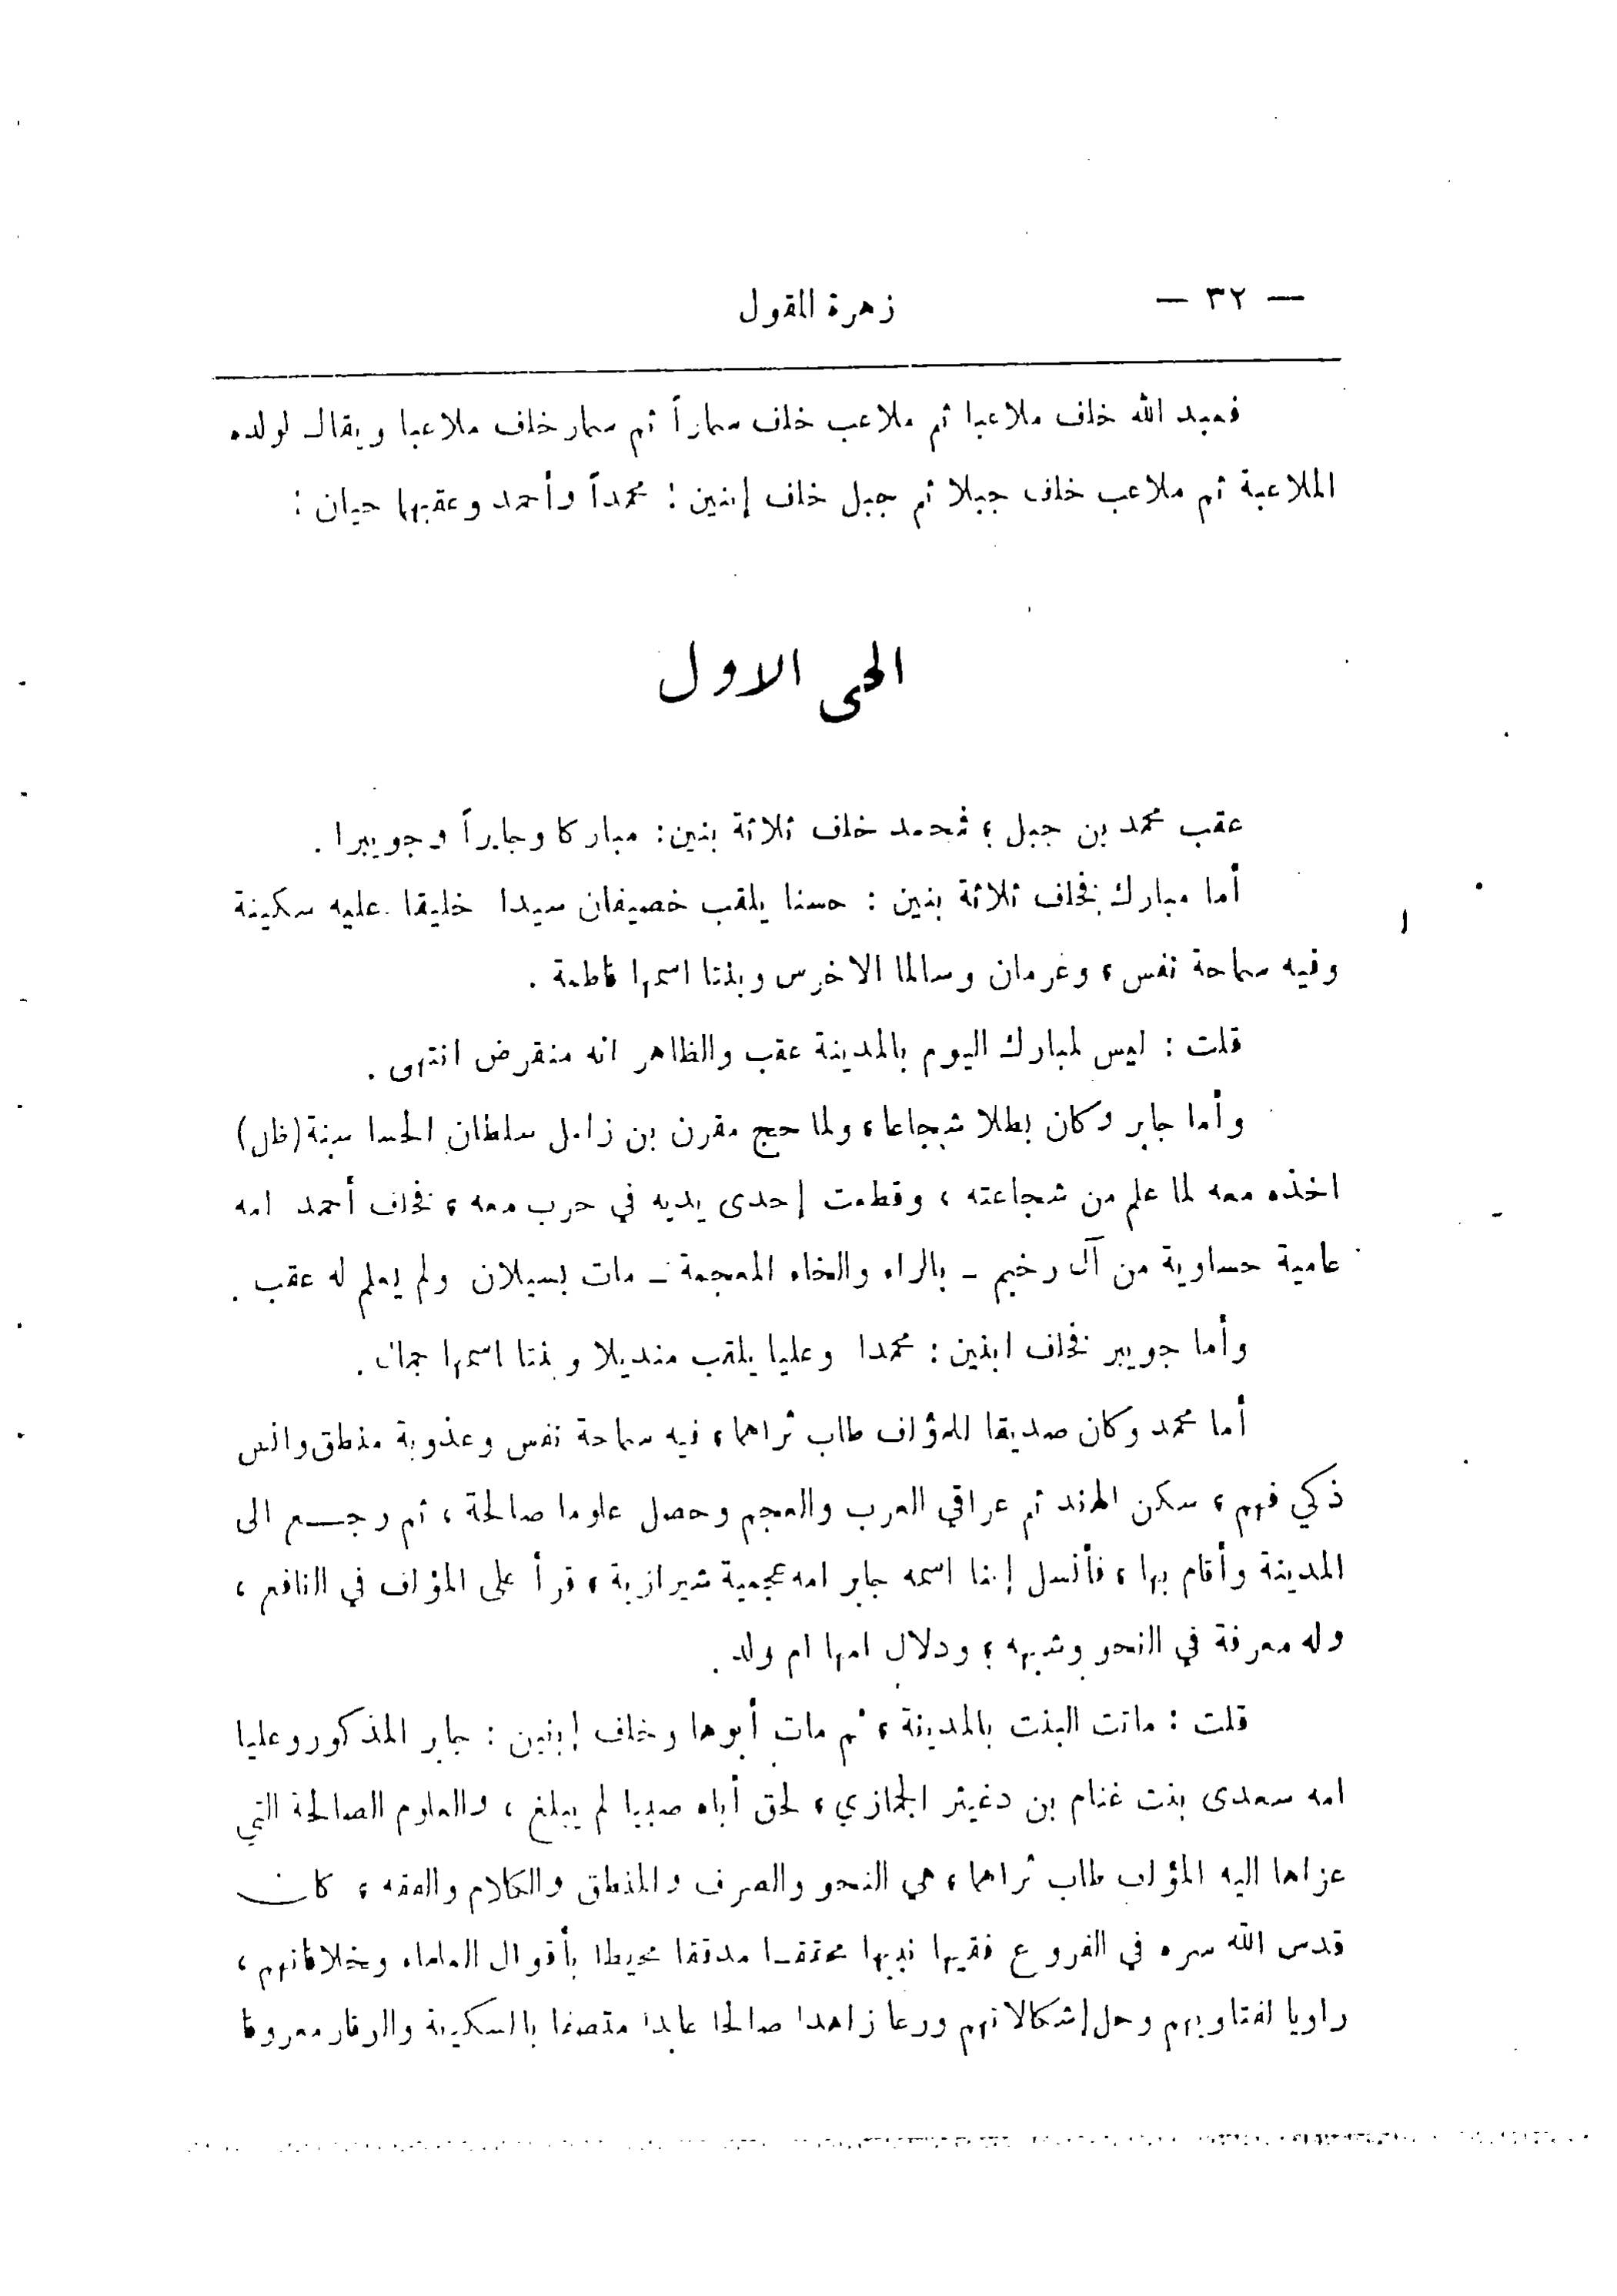 — ٣٢ —
زهرة المقول
فعبد الله خلف ملاعبا ثم ملاعب خلف سماراً ثم سمار خلف ملاعبا ويقال لولده
الملاعبة ثم ملاعب خلف جبلا ثم جبل خلف إبنين : محمداً وأحمد وعقبهما حيان :
الحي الاول
عقب محمد بن جبل ؛ فمحمد خلف ثلاثة بنين : مباركا وجابراً وجويبرا .
أما مبارك فخلف ثلاثة بنين : حسنا يلقب خصيفان سيدا خليقا عليه سكينة
وفيه سماحة نفس ، وعرمان وسالما الاخرس وبنتا اسمها فاطمة .
قلت : ليس لمبارك اليوم بالمدينة عقب والظاهر انه منقرض انتهى .
وأما جابر وكان بطلا شجاعا ، ولما حج مقرن بن زامل سلطان الحسا سنة (ظل)
اخذه معه لما علم من شجاعته ، وقطعت إحدى يديه في حرب معه ، فخلف أحمد امه
عامية حساوية من آل رخيم ـ بالراء والخاء المعجمة ـ مات بسيلان ولم يعلم له عقب .
وأما جويبر فخلف ابنين : محمدا وعليا يلقب منديلا وبنتا اسمها جمال .
أما محمد وكان صديقا للمؤلف طاب ثراهما ، فيه سماحة نفس وعذوبة منطق وانس
ذكي فهم ، سكن الهند ثم عراقي العرب والعجم وحصل علوما صالحة ، ثم رجع الى
المدينة وأقام بها ، فأنسل إبنا اسمه جابر امه عجمية شيرازية ، قرأ على المؤلف في النافع ،
وله معرفة في النحو وشبهه ؛ ودلال امها ام ولد .
قلت : ماتت البنت بالمدينة ، ثم مات أبوها وخلف إبنين : جابر المذكور وعليا
امه سعدى بنت غنام بن دغيثر الجمازي ، لحق أباه صبيا لم يبلغ ، والعلوم الصالحة التي
عزاها اليه المؤلف طاب ثراهما ، هي النحو والصرف والمنطق والكلام والفقه ، كان
قدس الله سره في الفروع فقيها نبيها محققا مدققا محيطا بأقوال العلماء وخلافاتهم ،
راويا لفتاويهم وحل إشكالاتهم ورعا زاهدا صالحا عابدا متصفا بالسكينة والوقار معروفا